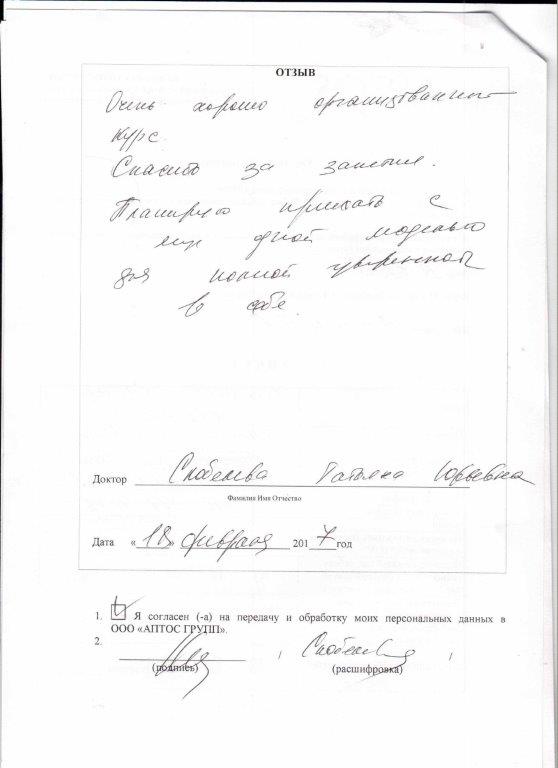 ОТЗЫВ
Очень хорошо организованный
курс.
Спасибо за занятие.
Планирую приехать с
еще одной моделью
для полной уверенности
в себе.
Доктор Скобелева Татьяна Юрьевна
Фамилия Имя Отчество
Дата «18» февраля 2017 год
1. Я согласен (-а) на передачу и обработку моих персональных данных в
ООО «АПТОС ГРУПП».
2.
/ Скобелева /
(подпись) (расшифровка)